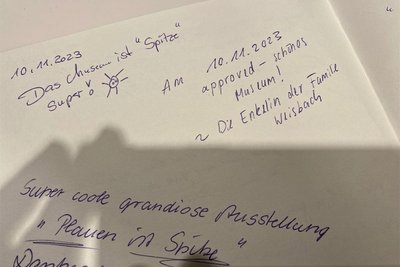 10.11.2023
Das Museum ist "Spitze"
Super!
10.11.2023
Am
approved - schönes
Museum!
~ Die Enkelin der Familie
Weisbach
Super coole grandiose Ausstellung
"Plauen ist Spitze"